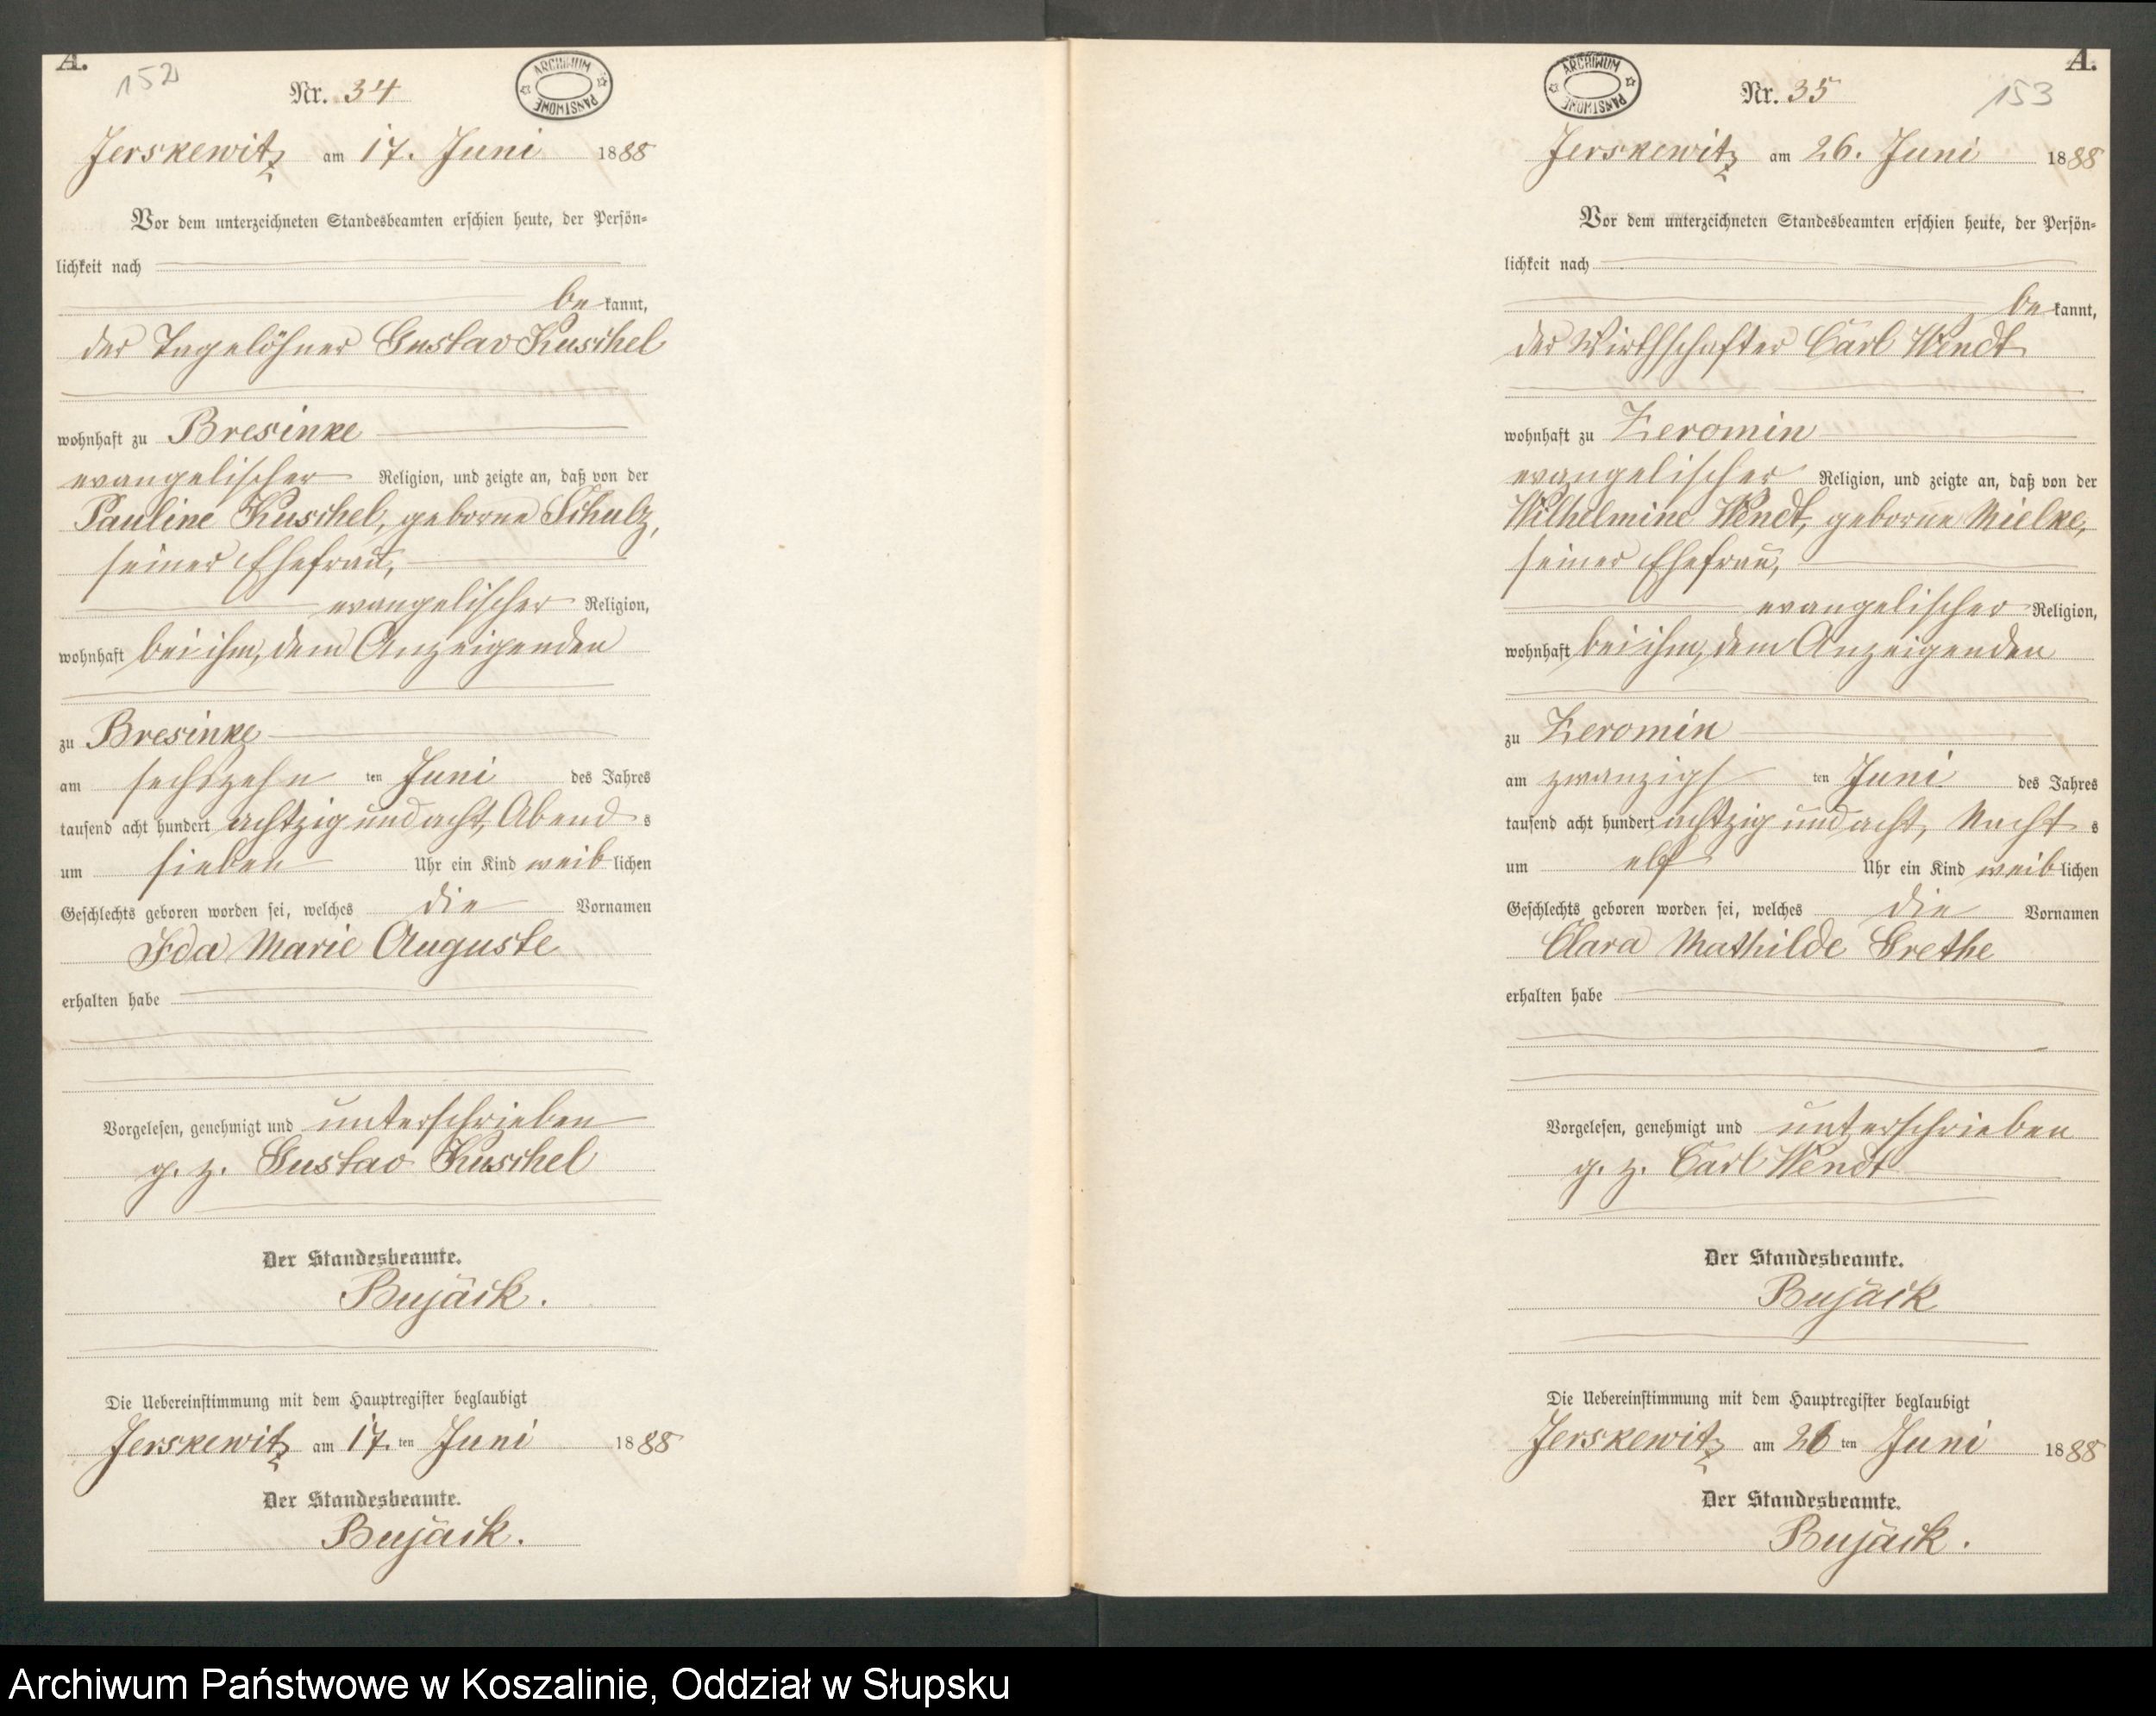 A.
152
Nr. 34
ARCHIWUM PAŃSTWOWE
Jerskewitz am 17. Juni 1888
Vor dem unterzeichneten Standesbeamten erschien heute, der Persön-
lichkeit nach
be kannt,
der Tagelöhner Gustav Kuschel
wohnhaft zu Bresinke
evangelischer Religion, und zeigte an, daß von der
Pauline Kuschel, geborne Schulz,
seiner Ehefrau,
evangelischer Religion,
wohnhaft bei ihm, dem Anzeigenden
zu Bresinke
am sechszehn ten Juni des Jahres
tausend acht hundert achtzig und acht, Abend s
um sieben Uhr ein Kind weib lichen
Geschlechts geboren worden sei, welches die Vornamen
Ida Marie Auguste
erhalten habe
Vorgelesen, genehmigt und unterschrieben
g. z. Gustav Kuschel
Der Standesbeamte.
Bujäck.
Die Uebereinstimmung mit dem Hauptregister beglaubigt
Jerskewitz am 17. ten Juni 1888
Der Standesbeamte.
Bujäck.
A.
153
Nr. 35
ARCHIWUM PAŃSTWOWE
Jerskewitz am 26. Juni 1888
Vor dem unterzeichneten Standesbeamten erschien heute, der Persön-
lichkeit nach
be kannt,
der Wirthschafter Carl Wendt
wohnhaft zu Zeromin
evangelischer Religion, und zeigte an, daß von der
Wilhelmine Wendt, geborne Mielke,
seiner Ehefrau,
evangelischer Religion,
wohnhaft bei ihm, dem Anzeigenden
zu Zeromin
am zwanzigs ten Juni des Jahres
tausend acht hundert achtzig und acht, Nacht s
um elf Uhr ein Kind weib lichen
Geschlechts geboren worden sei, welches die Vornamen
Clara Mathilde Grethe
erhalten habe
Vorgelesen, genehmigt und unterschrieben
g. z. Carl Wendt
Der Standesbeamte.
Bujäck
Die Uebereinstimmung mit dem Hauptregister beglaubigt
Jerskewitz am 26 ten Juni 1888
Der Standesbeamte.
Bujäck.
Archiwum Państwowe w Koszalinie, Oddział w Słupsku